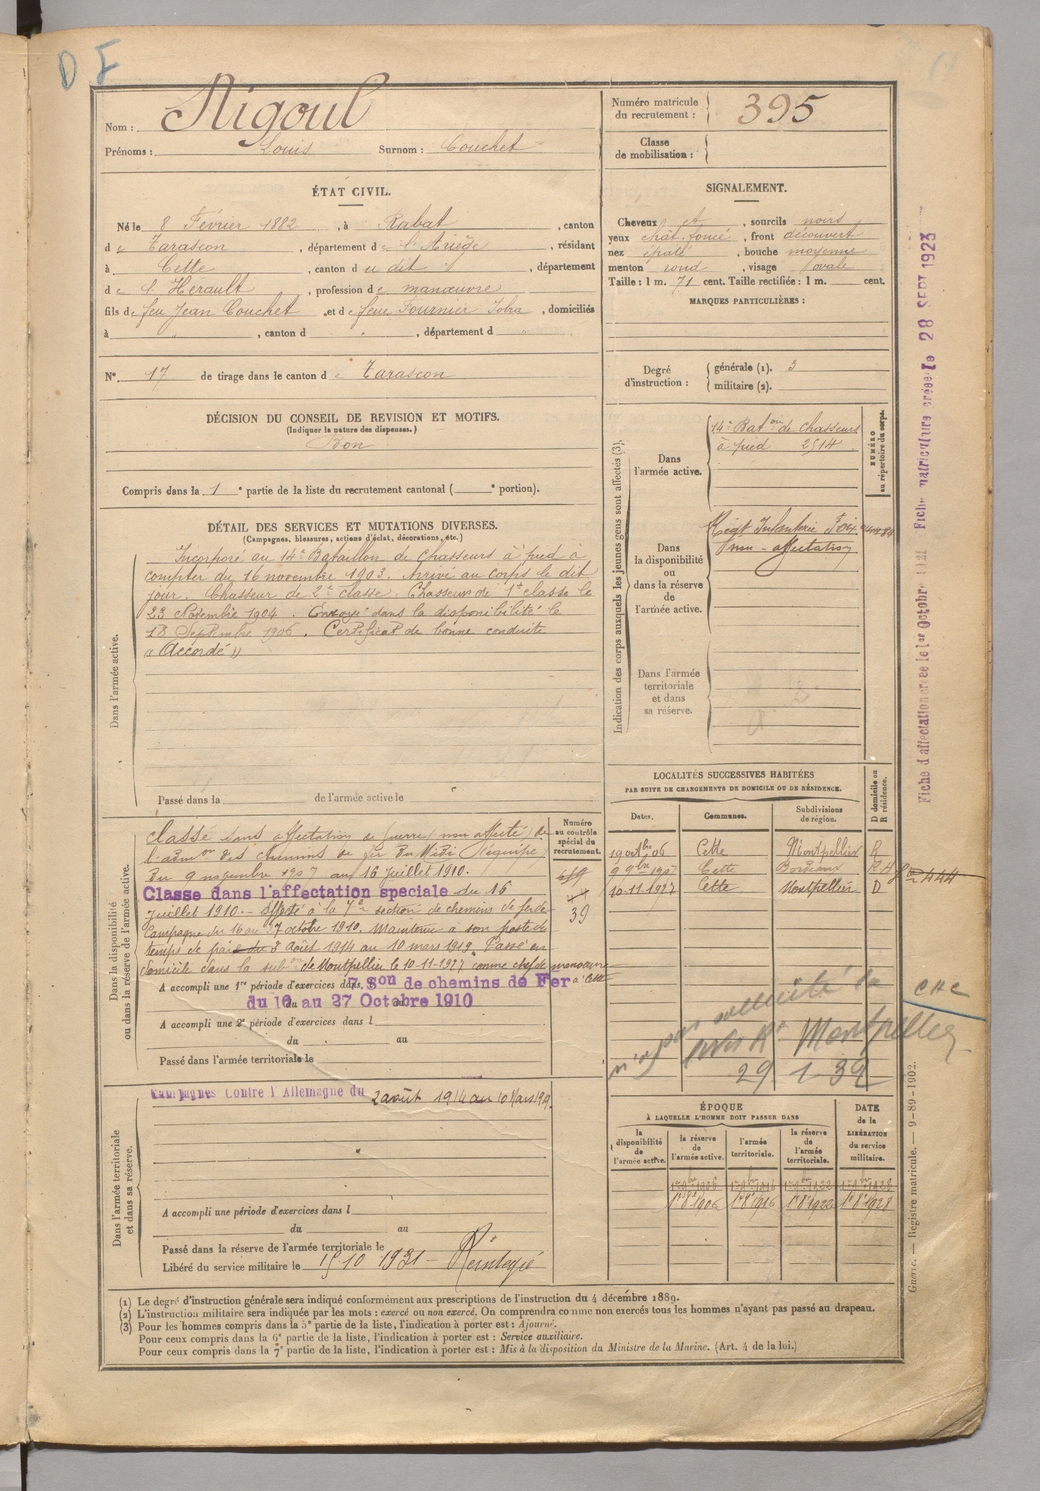 D F
Nom : Rigoul
Prénoms : Louis Surnom : Couchet
Numéro matricule du recrutement : 395
Classe de mobilisation :
ÉTAT CIVIL.
Né le 8 Février 1882, à Rabat, canton
de Tarascon, département de l'Ariège, résidant
à Cette, canton du dit, département
de l'Hérault, profession de manœuvre
fils de feu Jean Couchet et de feue Fournier, domiciliés
à , canton d , département d
N° 17 de tirage dans le canton de Tarascon
SIGNALEMENT.
Cheveux et, sourcils noirs
yeux chât. foncé, front découvert
nez épaté, bouche moyenne
menton rond, visage ovale
Taille : 1 m. 71 cent. Taille rectifiée : 1 m. cent.
MARQUES PARTICULIÈRES :
Degré d'instruction :
générale (1). 3
militaire (2).
DÉCISION DU CONSEIL DE REVISION ET MOTIFS.
(Indiquer la nature des dispenses.)
Bon
Compris dans la 1e partie de la liste du recrutement cantonal ( e portion).
DÉTAIL DES SERVICES ET MUTATIONS DIVERSES.
(Campagnes, blessures, actions d'éclat, décorations, etc.)
Dans l'armée active.
Incorporé au 14e Bataillon de Chasseurs à pied à
compter du 16 novembre 1903. Arrivé au corps le dit
jour. Chasseur de 2e classe. Chasseur de 1e classe le
23 Novembre 1904. Envoyé dans la disponibilité le
18 Septembre 1906. Certificat de bonne conduite
« Accordé »
Passé dans la de l'armée active le
Indication des corps auxquels les jeunes gens sont affectés (3).
NUMÉRO au répertoire du corps.
Dans l'armée active.
14e Baton de Chasseurs
à pied 2514
Dans la disponibilité ou dans la réserve de l'armée active.
Régt Infanterie Foix
non-affectation
Dans l'armée territoriale et dans sa réserve.
Dans la disponibilité ou dans la réserve de l'armée active.
Numéro au contrôle spécial du recrutement.
39
Classé dans affectation de guerre (non affecté) de
l'admon des chemins de fer du Midi
du 9 novembre 1907 au 16 juillet 1910.
Classé dans l'affectation spéciale du 16
juillet 1910. - affecté à la 7e section de chemins de fer de
Campagne du 16 au 27 octobre 1910. Maintenu à son poste du
temps de paix du 2 Août 1914 au 10 mars 1919. Passé en
domicile dans la subon de Montpellier le 10-11-1927 comme chef de manœuvre à Cette
A accompli une 1re période d'exercices dans 7. Son de chemins de Fer
du 16 au 27 Octobre 1910
A accompli une 2e période d'exercices dans l
du au
Passé dans l'armée territoriale le
LOCALITÉS SUCCESSIVES HABITÉES
PAR SUITE DE CHANGEMENTS DE DOMICILE OU DE RÉSIDENCE.
Dates. Communes. Subdivisions de région. D domicile ou R résidence.
19 octbre 06 Cette Montpellier R
9 9bre 1907 Cette Bordeaux R
10-11-1927 Cette Montpellier D
CHC
Montpellier
29 1 32
Dans l'armée territoriale et dans sa réserve.
Campagnes Contre l'Allemagne du 2 août 1914 au 10 Mars 1919.
A accompli une période d'exercices dans l
du au
Passé dans la réserve de l'armée territoriale le
Libéré du service militaire le 15 10 1931 -
ÉPOQUE
À LAQUELLE L'HOMME DOIT PASSER DANS
la disponibilité de l'armée active. la réserve de l'armée active. l'armée territoriale. la réserve de l'armée territoriale.
DATE de la LIBÉRATION du service militaire.
1er 8bre 1906 1er 8bre 1916 1er 8bre 1922 1er 8bre 1928
(1) Le degré d'instruction générale sera indiqué conformément aux prescriptions de l'instruction du 4 décembre 1889.
(2) L'instruction militaire sera indiquée par les mots : exercé ou non exercé. On comprendra comme non exercés tous les hommes n'ayant pas passé au drapeau.
(3) Pour les hommes compris dans la 5e partie de la liste, l'indication à porter est : Ajourné.
Pour ceux compris dans la 6e partie de la liste, l'indication à porter est : Service auxiliaire.
Pour ceux compris dans la 7e partie de la liste, l'indication à porter est : Mis à la disposition du Ministre de la Marine. (Art. 4 de la loi.)
Fiche d'affectation créée le 1er Octobre Fiche matriculaire créée le 28 SEPT 1923
Guerre. — Registre matricule. — 9-89-1902.